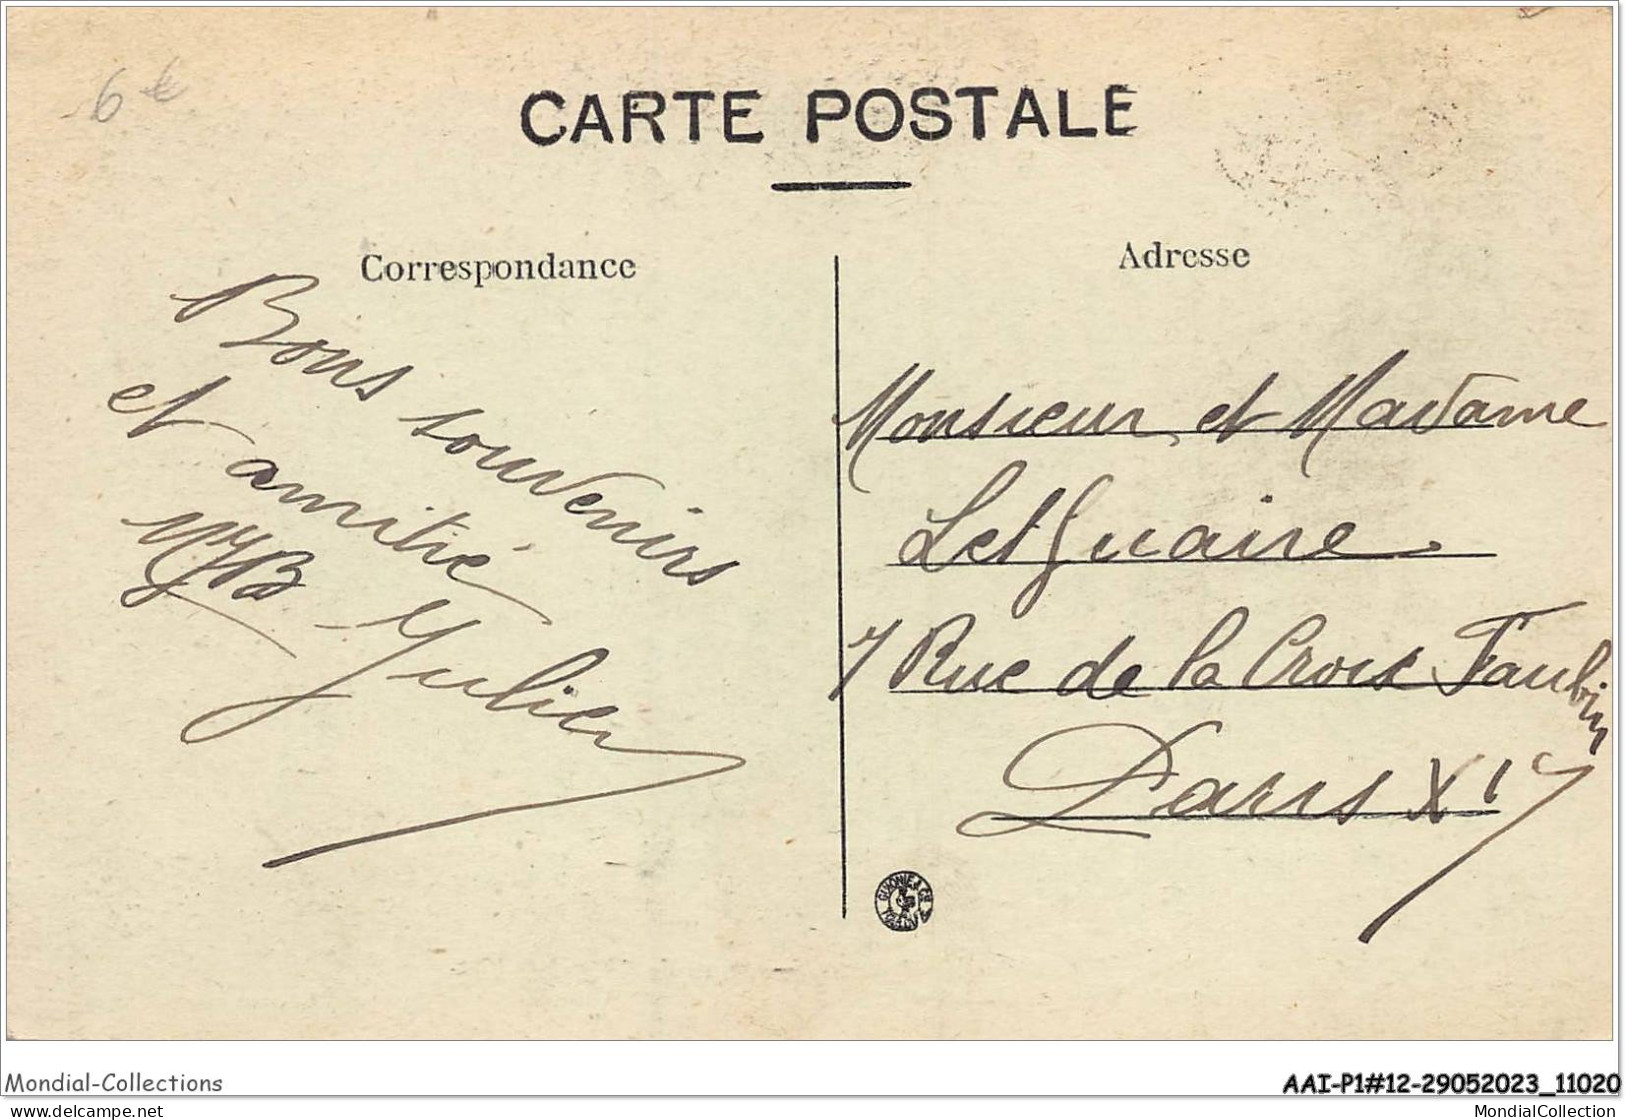 6€
CARTE POSTALE
Correspondance
Adresse
Bons souvenirs
et amitié
Julien
Monsieur et Madame
7 Rue de la Croix Faubin
Paris XI
Mondial-Collections
AAI-P1#12-29052023_11020
www.delcampe.net
MondialCollection